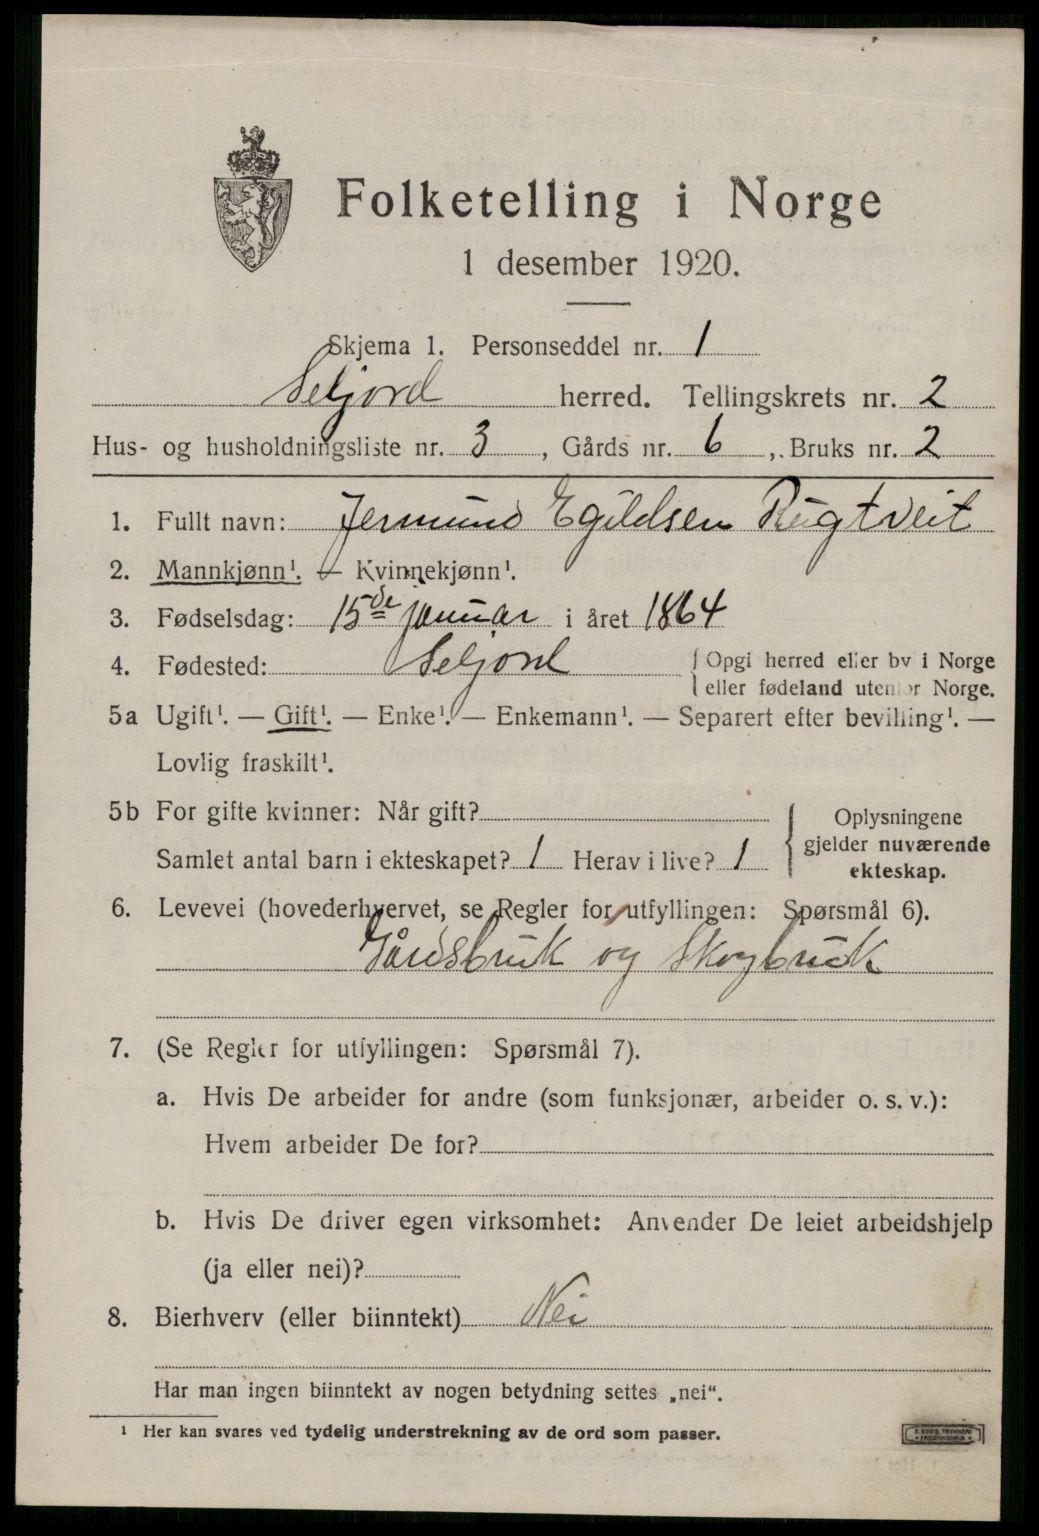 Folketelling i Norge
1 desember 1920.
Skjema 1. Personseddel nr. 1
Seljord herred. Tellingskrets nr. 2
Hus- og husholdningsliste nr. 3, Gårds nr. 6, Bruks nr. 2
1. Fullt navn: Jermund Egildsen Rugtveit
2. Mannkjønn¹. — Kvinnekjønn¹.
3. Fødselsdag: 15de januar i året 1864
4. Fødested: Seljord { Opgi herred eller by i Norge
eller fødeland utenfor Norge.
5a Ugift¹. — Gift¹. — Enke¹. — Enkemann¹. — Separert efter bevilling¹. —
Lovlig fraskilt¹.
5b For gifte kvinner: Når gift?
Samlet antal barn i ekteskapet? 1 Herav i live? 1
Oplysningene
gjelder nuværende
ekteskap.
6. Levevei (hovederhvervet, se Regler for utfyllingen: Spørsmål 6).
Gårdsbruk og Skogbruk
7. (Se Regler for utfyllingen: Spørsmål 7).
a. Hvis De arbeider for andre (som funksjonær, arbeider o. s. v.):
Hvem arbeider De for?
b. Hvis De driver egen virksomhet: Anvender De leiet arbeidshjelp
(ja eller nei)?
8. Bierhverv (eller biinntekt) Nei
Har man ingen biinntekt av nogen betydning settes „nei“.
¹ Her kan svares ved tydelig understrekning av de ord som passer.